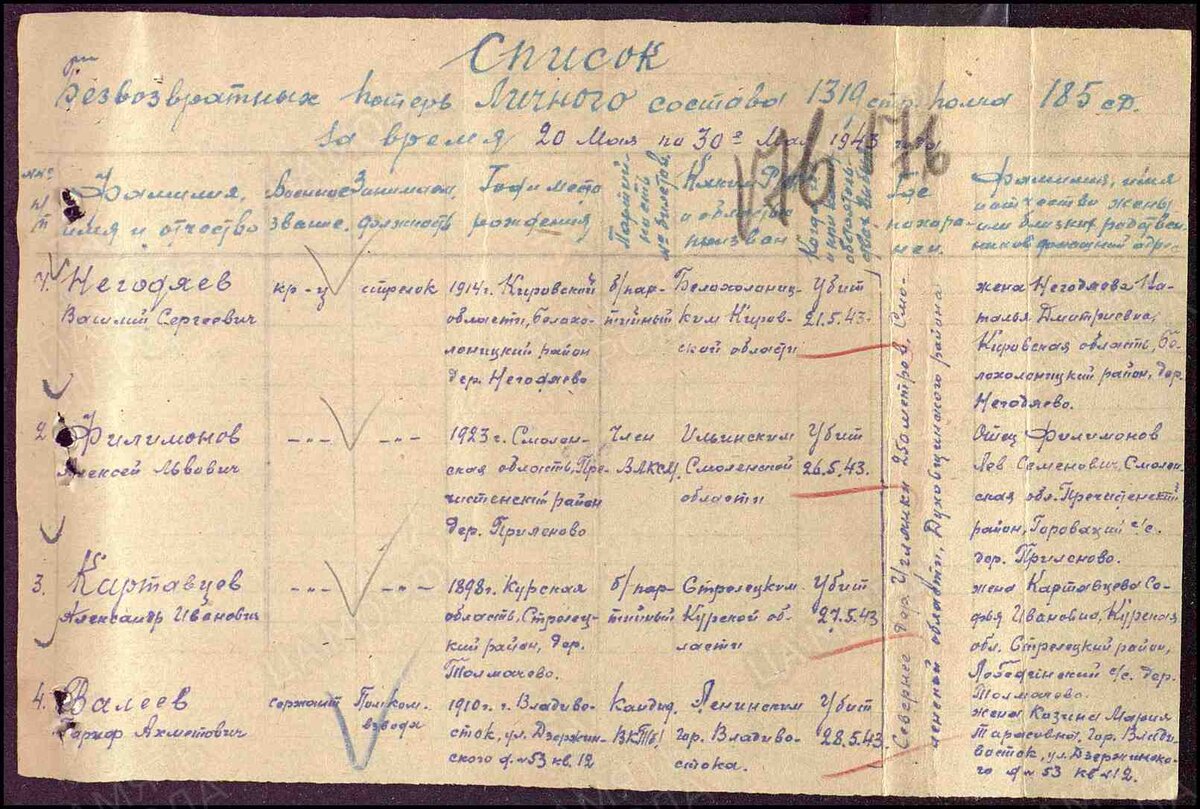 Список
безвозвратных потерь личного состава 1319 стр. полка 185 сд.
за время 20 Мая по 30е Мая 1943 года
176 176
Фамилия,
имя и отчество
Военное
звание.
Занимаем.
должность
Год и место
рождения
Партий-
ность
№ билетов.
Каким Р
и область
призван
Где
похоро-
нен.
Фамилия, имя
и отчество жены
или близких родствен
ников домашний адрес
1. Негодяев
Василий Сергеевич
кр-ц
стрелок
1914 г. Кировской
области, белохо-
лоницкий район
дер. Негодяево
б/пар-
тийный
Белохолониц-
ким Киров-
ской области
Убит
21.5.43.
жена Негодяева На-
талья Дмитриевна,
Кировская область, бе-
лохолоницкий район, дер.
Негодяево.
2. Филимонов
Алексей Львович
-"-
-"-
1923 г. Смолен-
ская область, Пре-
чистенский район
дер. Приленово
Член
ВЛКСМ
Ильинским
Смоленской
области
Убит
26.5.43.
Отец Филимонов
Лев Семенович, Смолен-
ская обл. Пречистенский
район, с/с.
дер. Приленово.
3. Картавцев
Александр Иванович
-"-
-"-
1898 г. Курская
область, Стрелец-
кий район, дер.
Толмачево.
б/пар-
тийный
Стрелецким
Курской об-
ласти
Убит
27.5.43
жена Картавцева Со-
фья Ивановна, Курская
обл. Стрелецкий район,
с/с. дер.
Толмачево.
4. Валеев
Гариф Ахметович
сержант
Пом ком.
взвода
1910 г. г. Владиво-
сток, ул. Дзержин-
ского д. №53 кв. 12
Кандид.
ВКП(б)
Ленинским
гор. Владиво-
стока.
Убит
28.5.43.
жена Казина Мария
Тарасивна, гор. Влади-
восток, ул. Дзержинско-
го д №53 кв №12.
Севернее дер. 250 метров. Смо-
ленской области, Духовщинского района